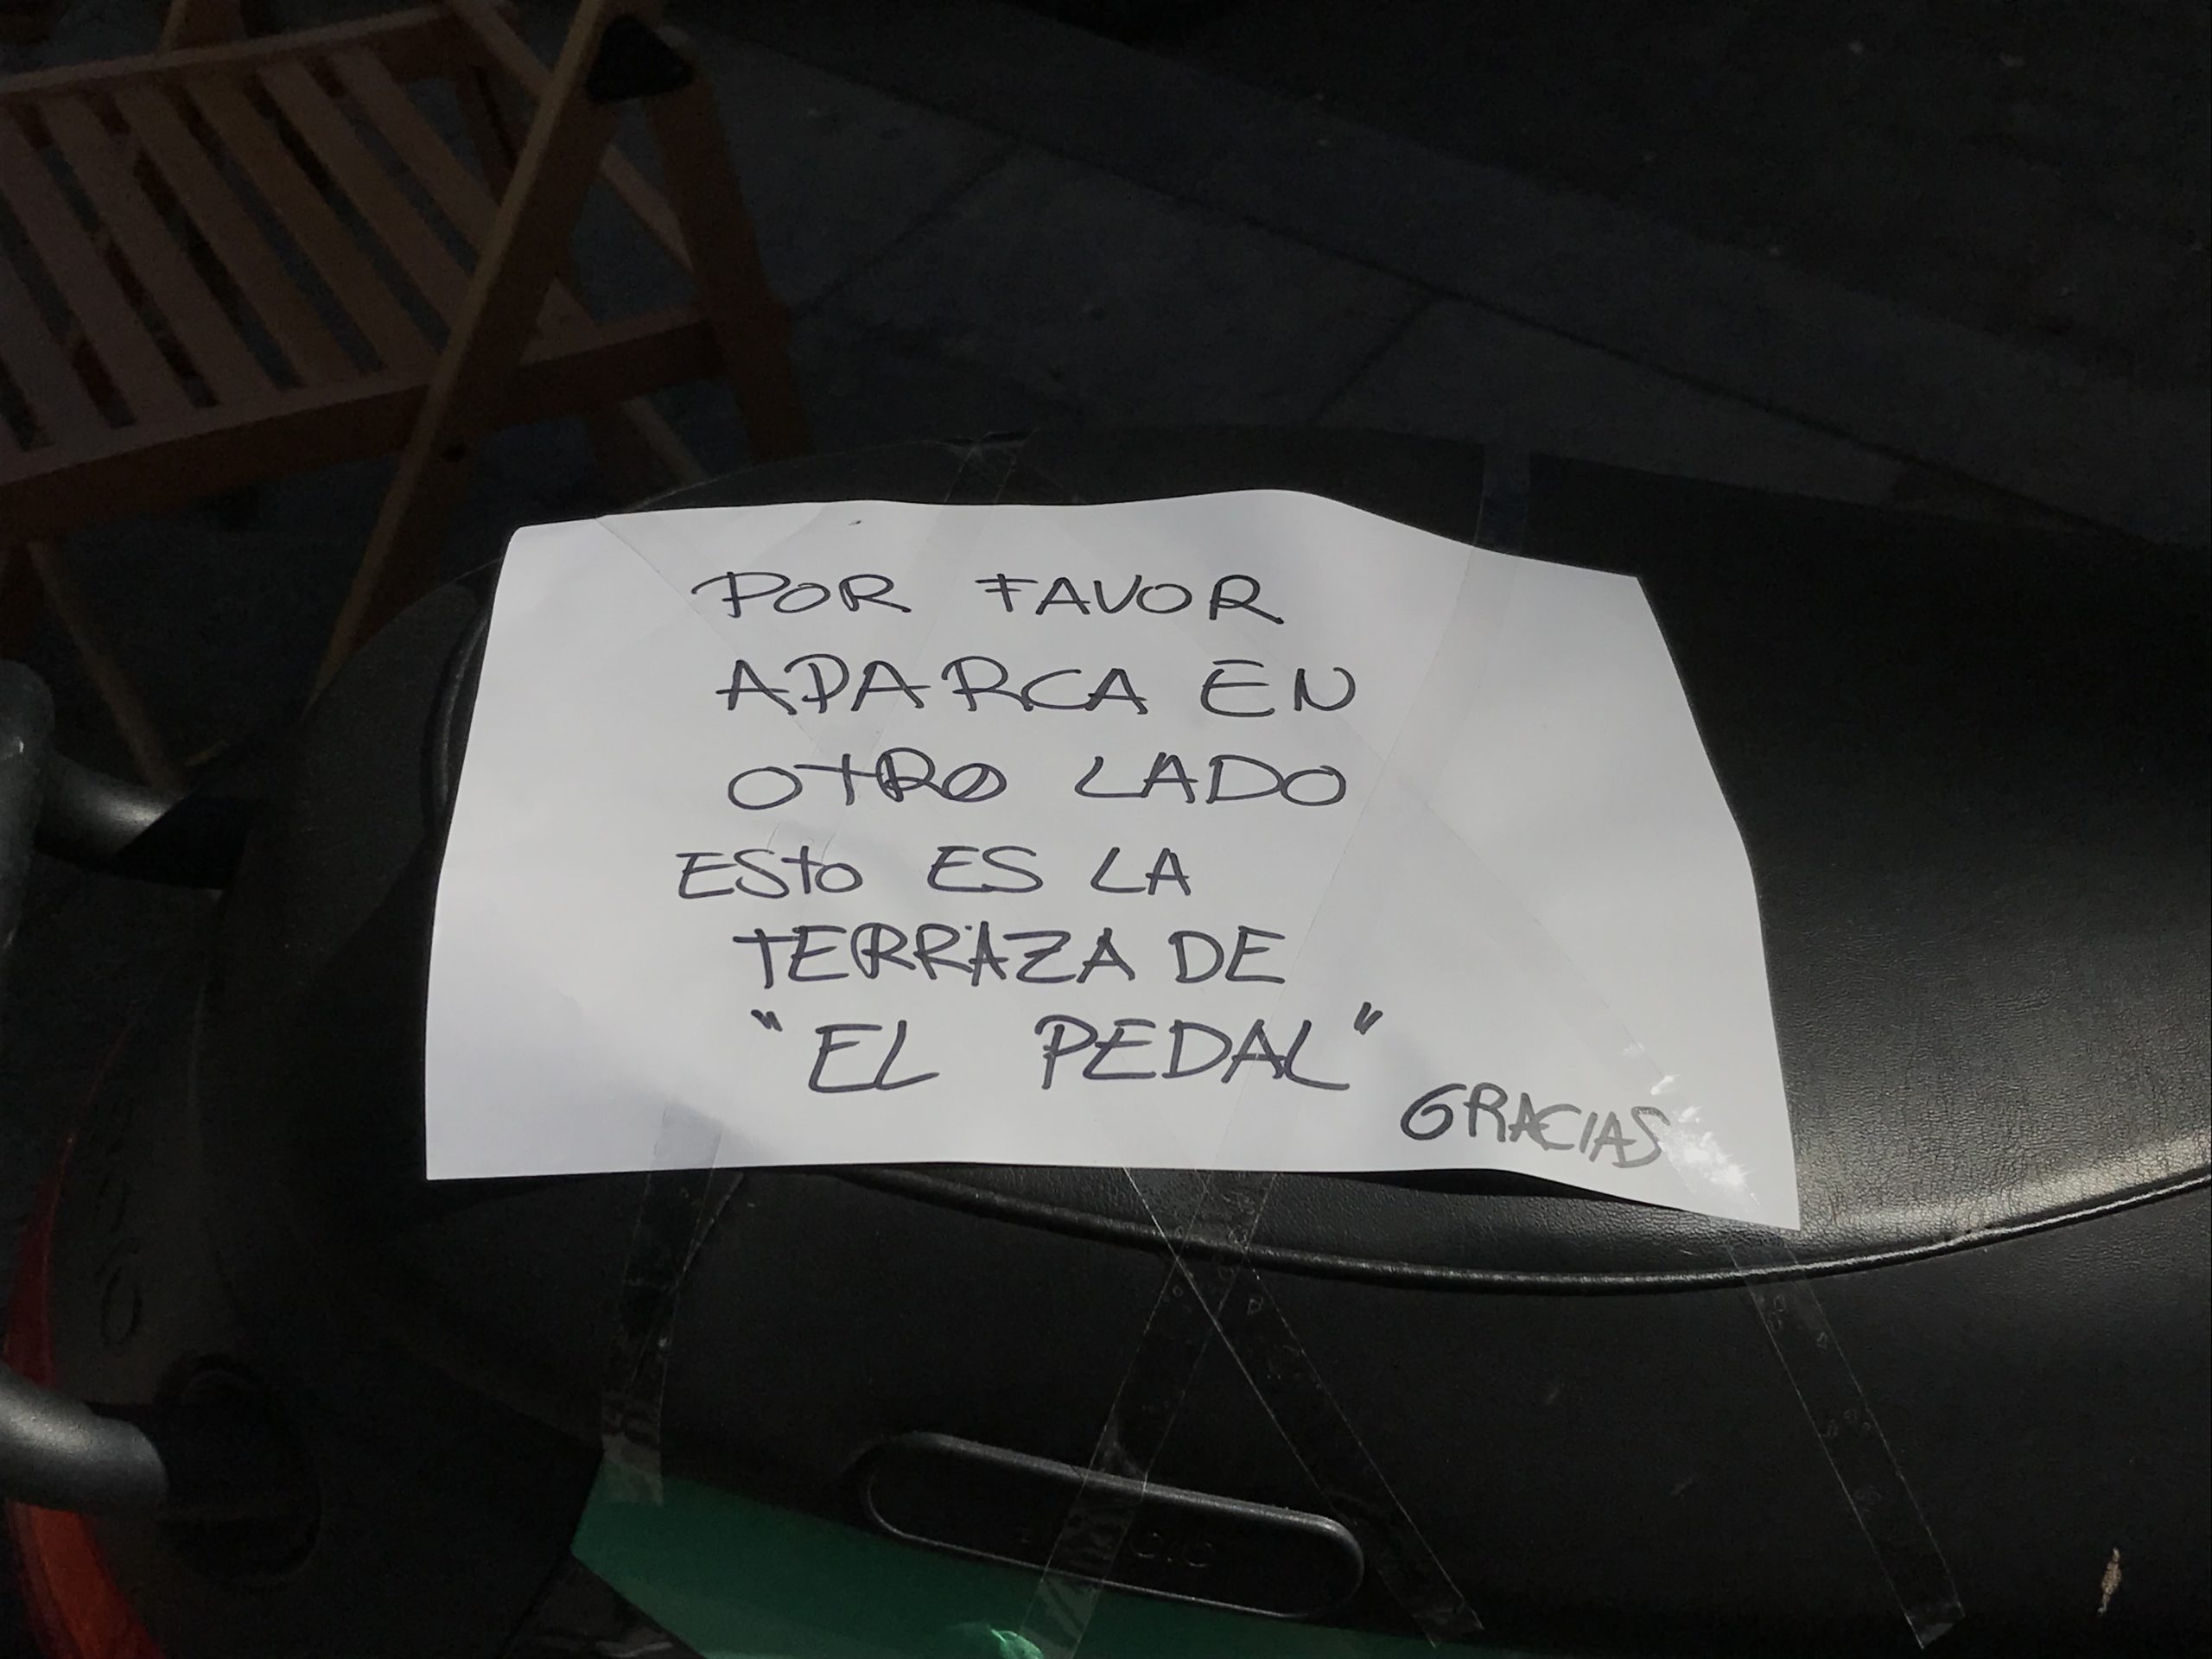 POR FAVOR
APARCA EN
OTRO LADO
ESto ES LA
TERRAZA DE
"EL PEDAL"
GRACIAS